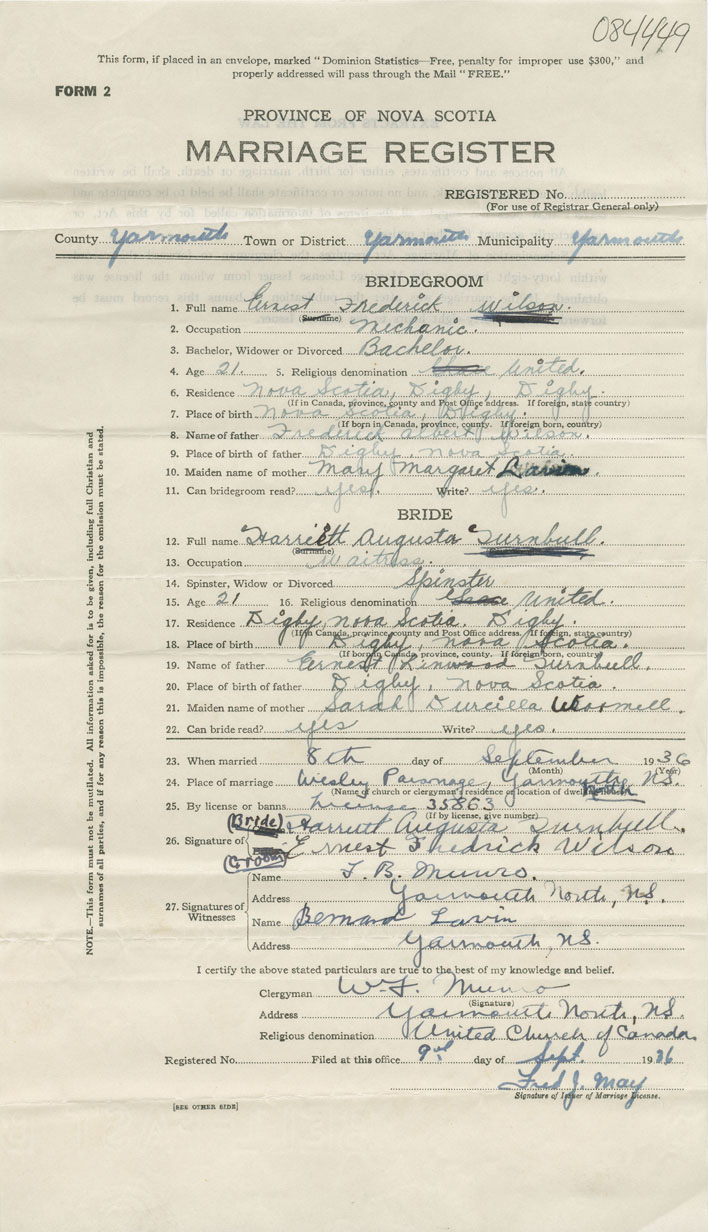 084449
This form, if placed in an envelope, marked "Dominion Statistics—Free, penalty for improper use $300," and
properly addressed will pass through the Mail "FREE."
FORM 2
PROVINCE OF NOVA SCOTIA
MARRIAGE REGISTER
REGISTERED No.
(For use of Registrar General only)
County Yarmouth Town or District Yarmouth Municipality Yarmouth
BRIDEGROOM
1. Full name Ernest Frederick Wilson.
(Surname)
2. Occupation Mechanic.
3. Bachelor, Widower or Divorced Bachelor.
4. Age 21. 5. Religious denomination United.
6. Residence Nova Scotia, Digby, Digby.
(If in Canada, province, county and Post Office address. If foreign, state country)
7. Place of birth Nova Scotia, Digby.
(If born in Canada, province, county. If foreign born, country)
8. Name of father Frederick Albert Wilson.
9. Place of birth of father Digby, Nova Scotia
10. Maiden name of mother Mary Margaret Lavin.
11. Can bridegroom read? yes. Write? yes.
BRIDE
12. Full name Harriett Augusta Turnbull.
(Surname)
13. Occupation Waitress.
14. Spinster, Widow or Divorced Spinster
15. Age 21 16. Religious denomination United.
17. Residence Digby, Nova Scotia. Digby.
(If in Canada, province, county and Post Office address. If foreign, state country)
18. Place of birth Digby, Nova Scotia.
(If born in Canada, province, county. If foreign born, country)
19. Name of father Ernest Linwood Turnbull.
20. Place of birth of father Digby, Nova Scotia.
21. Maiden name of mother Sarah Durcilla Wormell.
22. Can bride read? yes Write? yes.
23. When married 8th day of September 1936
(Month) (Year)
24. Place of marriage Wesley Parsonage, Yarmouth North N.S.
(Name of church or clergyman's residence or location of dwelling)
25. By license or banns License 35863
(If by license, give number)
(Bride) Harriett Augusta Turnbull.
26. Signature of
(Groom) Ernest Fredrick Wilson
Name T. B. Munro.
Address Yarmouth North, N.S.
27. Signatures of Witnesses
Name Bernard Lavin
Address Yarmouth, N.S.
I certify the above stated particulars are true to the best of my knowledge and belief.
Clergyman W. F. Munro
(Signature)
Address Yarmouth North, N.S.
Religious denomination United Church of Canada
Registered No. Filed at this office 9th day of Sept. 1936
Fred J. May
Signature of Issuer of Marriage License.
[SEE OTHER SIDE]
NOTE.—This form must not be mutilated. All information asked for is to be given, including full Christian and
surnames of all parties, and if for any reason this is impossible, the reason for the omission must be stated.